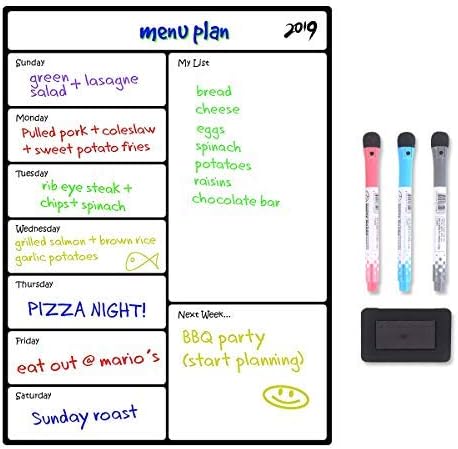 menu plan
2019
Sunday
green + lasagne
salad
Monday
Pulled pork + coleslaw
+ sweet potato fries
Tuesday
rib eye steak +
chips + spinach
Wednesday
grilled salmon + brown rice
garlic potatoes
Thursday
PIZZA NIGHT!
Friday
eat out @ mario's
Saturday
Sunday roast
My List
bread
cheese
eggs
spinach
potatoes
raisins
chocolate bar
Next Week...
BBQ party
(start planning)